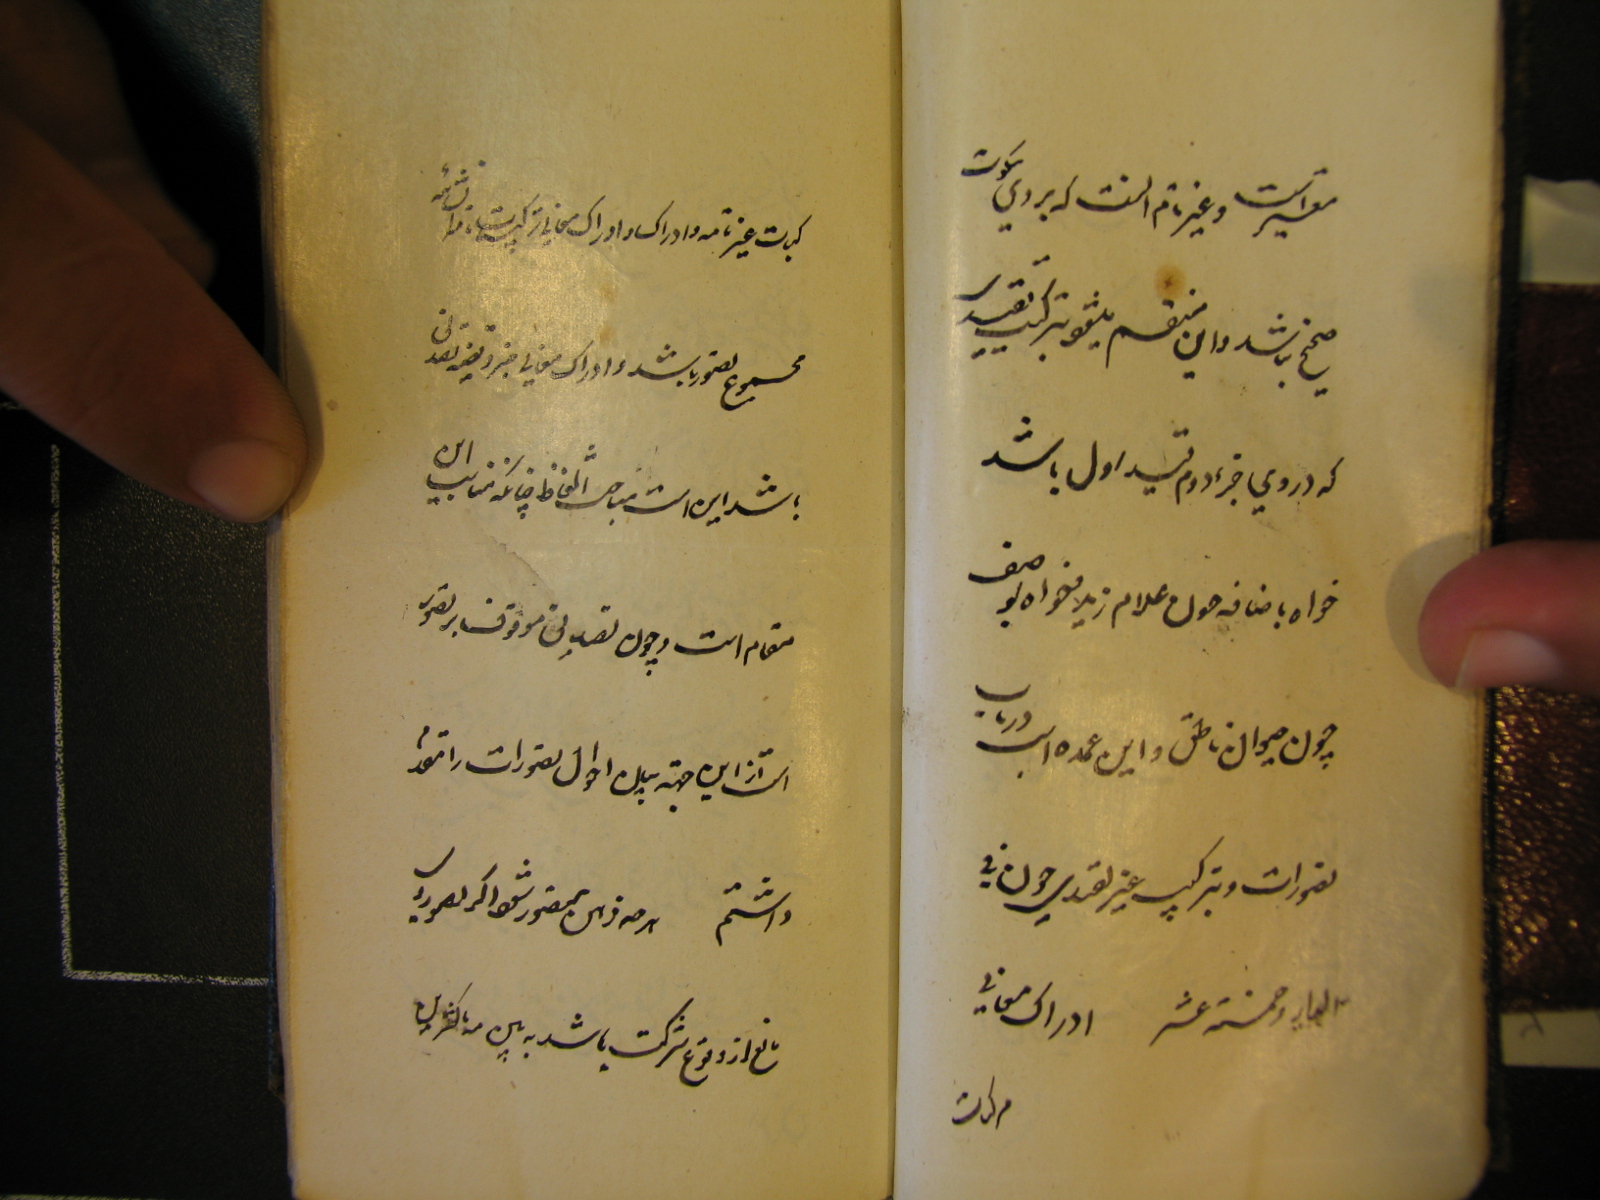 معتبر است و غیر تام آنست که بر وی سکوت
صحیح نباشد و این منقسم میشود بترکیب تقییدی
که در وی جزء دوم قید اول باشد
خواه باضافه چون غلام زید و خواه بوصف
چون حیوان ناطق و این عمده است در باب
تصورات و بترکیب غیر تقییدی چون فی
الدار و خمسة عشر ادراک معانی
مرکبات
کبات غیر تامه و ادراک معانی ترکیبات تامه انشائیه
مجموع تصور باشد و ادراک معانی خبر و قضیه تصدیق
باشد این است مباحث الفاظ چنانکه مناسب این
مقام است و چون تصدیق موقوف بر تصور
است از این جهة بیان احوال تصورات را مقدم
داشتم هر چه در ذهن متصور شود اگر تصور وی
مانع از وقوع شرکت باشد